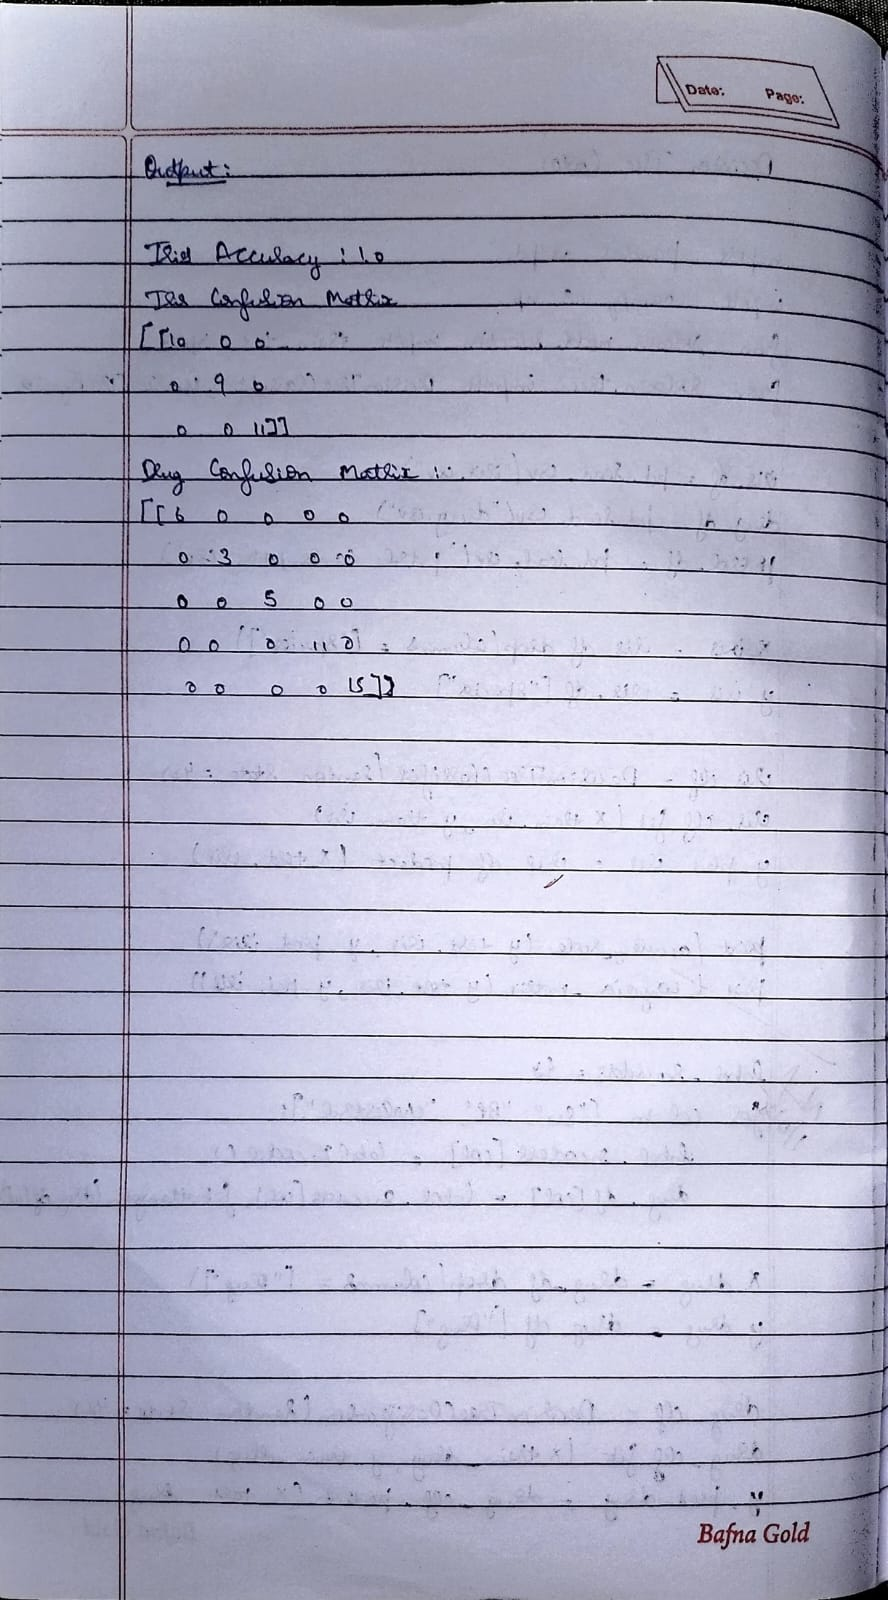 Date: Page:
Output:
Iris Accuracy : 1.0
Iris Confusion Matrix
[[10 0 0
0 9 0
0 0 11]]
Drug Confusion Matrix :
[[6 0 0 0 0
0 3 0 0 0
0 0 5 0 0
0 0 0 11 0
0 0 0 0 15]]
Bafna Gold